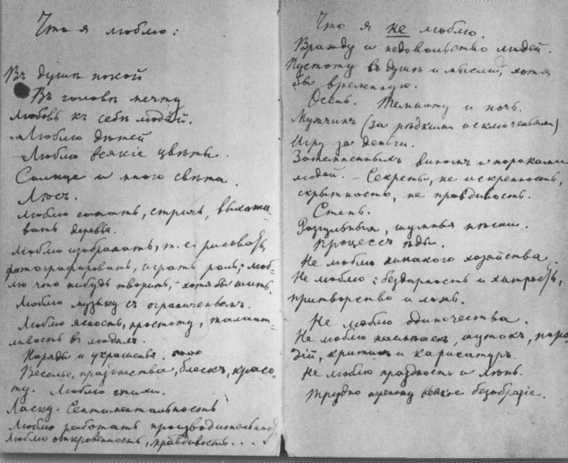 Что я люблю:
Въ душѣ покой
Въ головѣ мечту
Любовь къ себѣ людей.
Люблю дѣтей
Люблю всякіе цвѣты.
Солнце и много свѣта.
Лѣсъ.
Люблю сажать, стричь, выхажи-
вать деревья.
Люблю изображать, т. е. рисовать,
фотографировать, играть роль; люб-
лю что нибудь творить, – хотя бы шить.
Люблю музыку съ ограниченьемъ.
Люблю ясность, простоту, талант-
ливость въ людяхъ.
Наряды и украшенья.
Веселье, празднества, блескъ, красо-
ту. Люблю стихи.
Ласку. Сентиментальность
Люблю работать производительно
Люблю откровенность, правдивость...
Что я не люблю.
Вражду и недовольство людей.
Пустоту въ душѣ и мысляхъ, хотя
бы временную.
Осень. Темноту и ночь.
Мужчинъ (за рѣдкими исключеньями)
Игру за деньги.
виномъ и пороками
людей. – Секреты, не искренность,
скрытность, не правдивость.
Степь.
шумныя пѣсни.
Процессъ ѣды.
Не люблю никакого хозяйства.
Не люблю: бездарность и хитрость,
притворство и ложь.
Не люблю одиночества.
Не люблю насмѣшекъ, шутокъ, паро-
дій, критики и карикатуръ.
Не люблю праздность и лѣнь.
Трудно переношу всякое безобразіе.